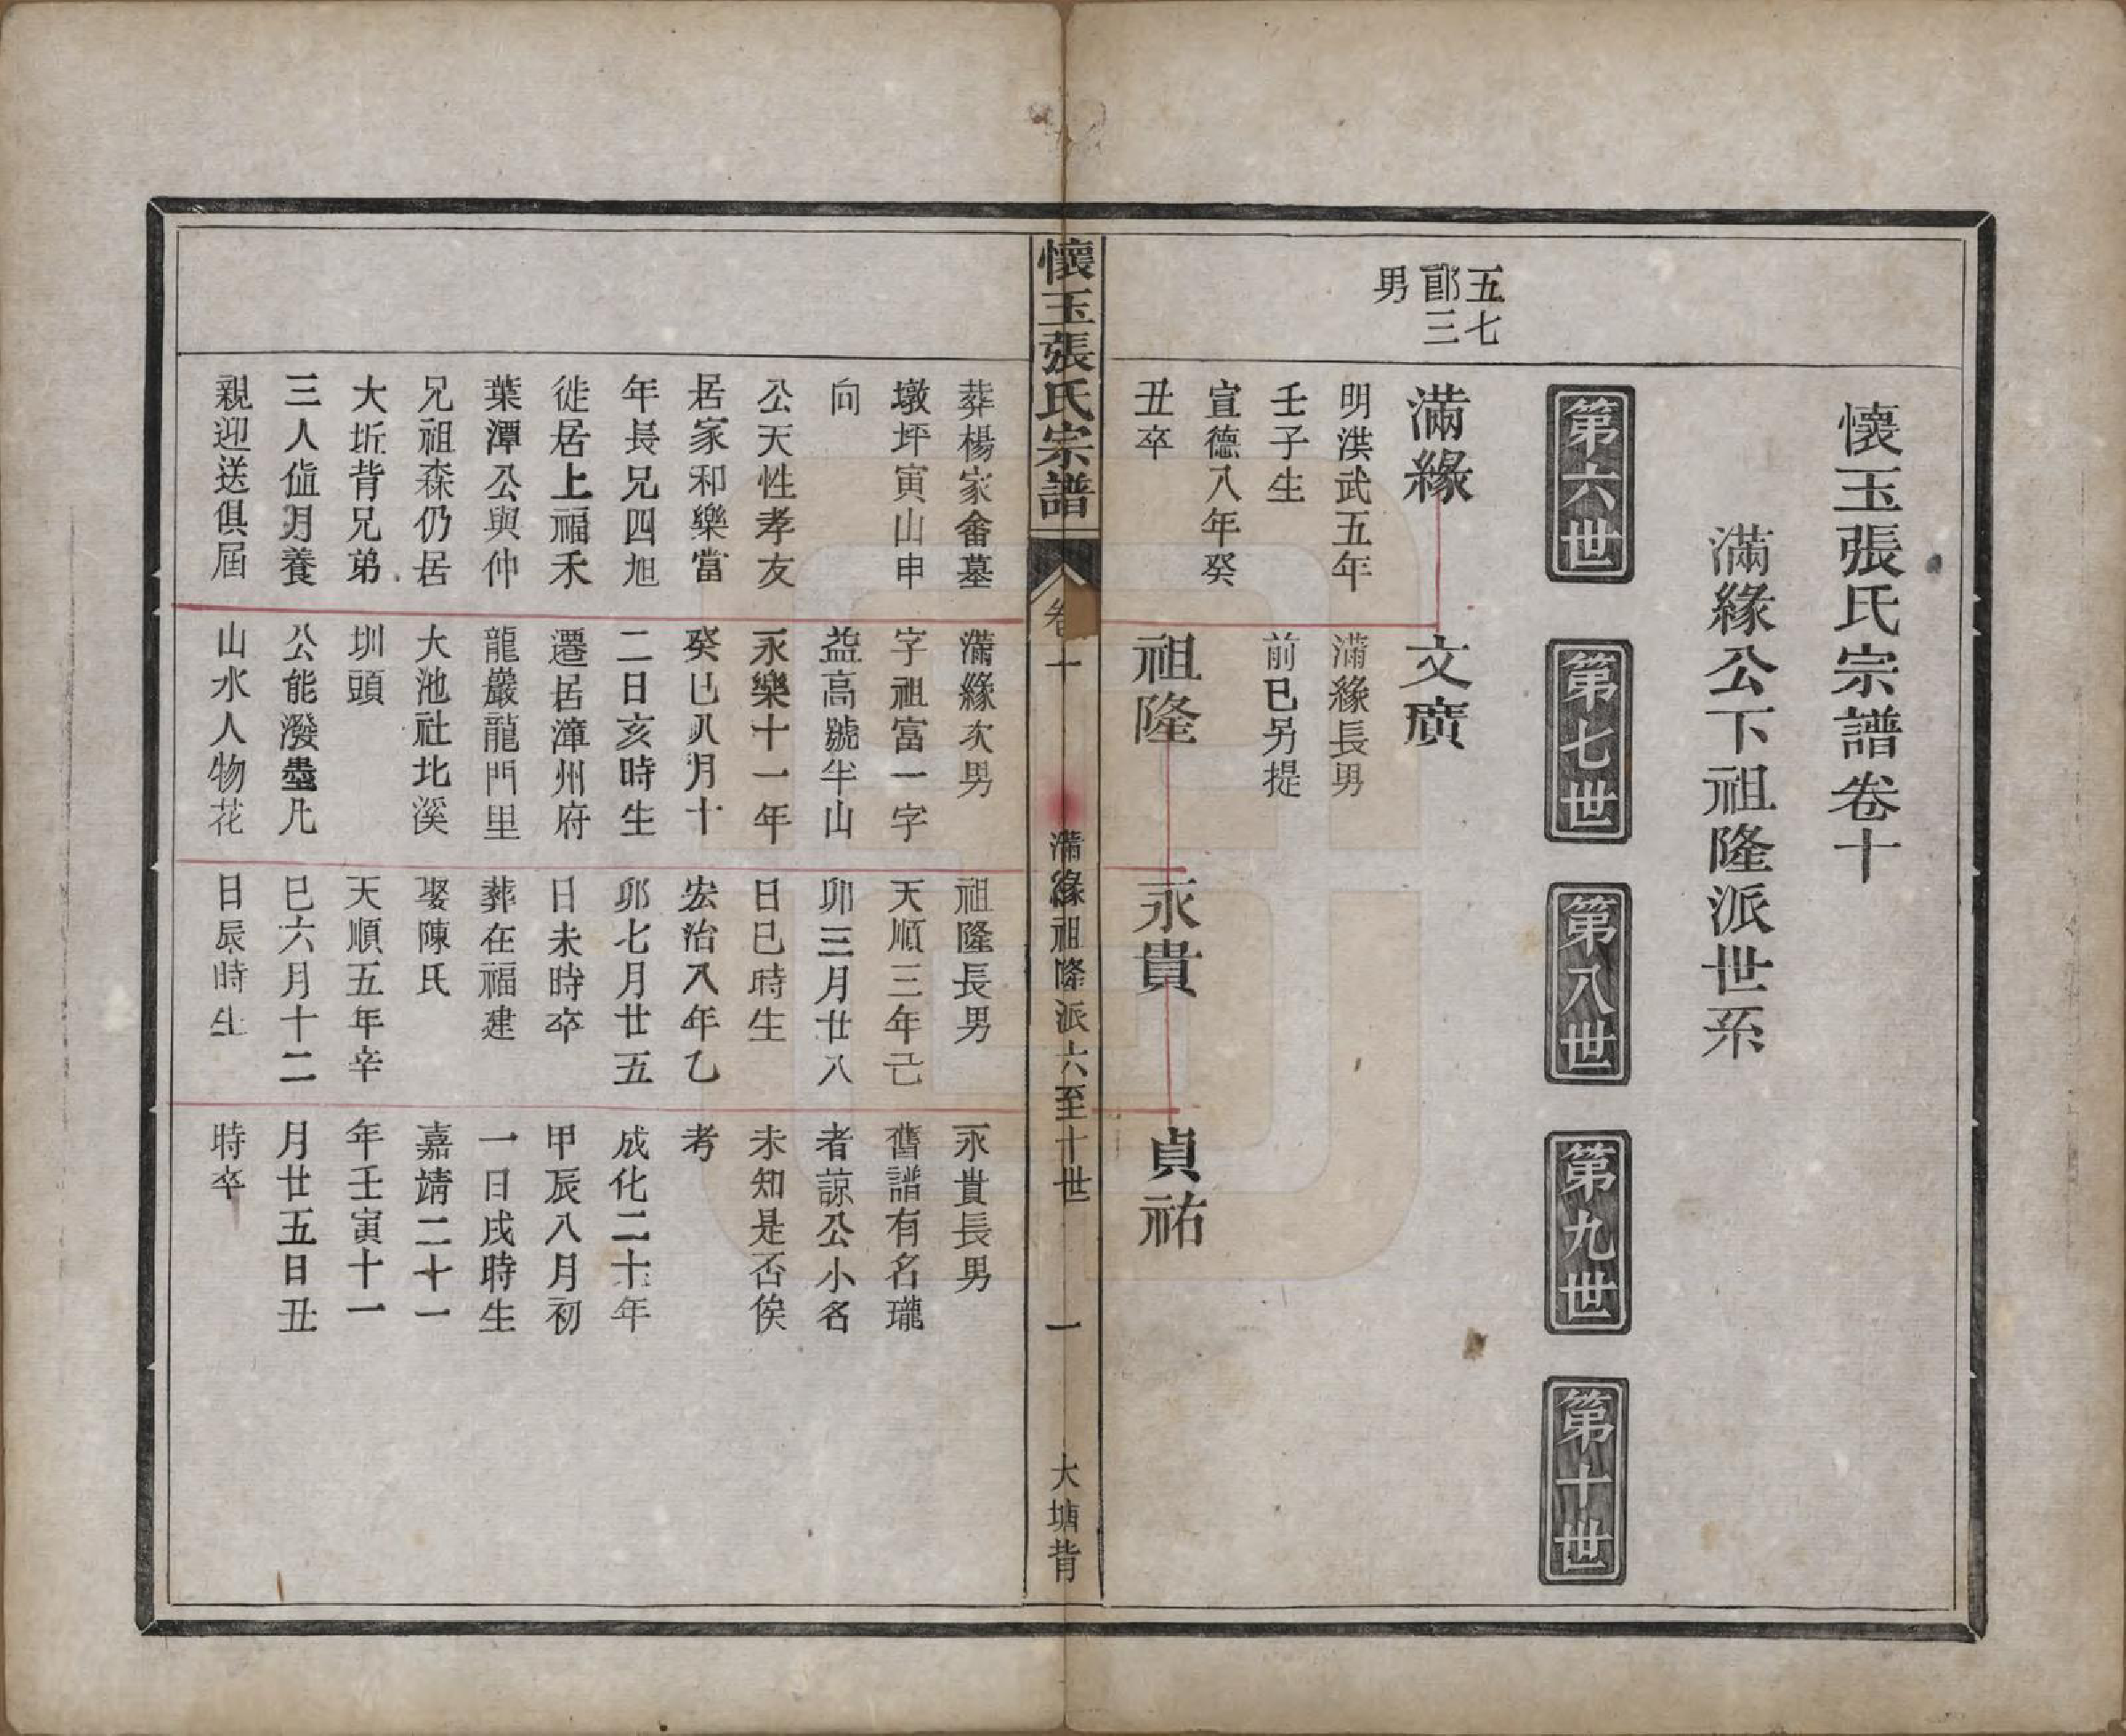 懷玉張氏宗譜卷十
滿緣公下祖隆派世系
第六世
第七世
第八世
第九世
第十世
五七
郎三
男
滿緣
明洪武五年
壬子生
宣德八年癸
丑卒
文廣
滿緣長男
前巳另提
祖隆
永貴
貞祐
懷玉張氏宗譜
卷十
滿緣祖隆派六至十世
一
大塘背
葬楊家畬墓
墩坪寅山申
向
公天性孝友
居家和樂當
年長兄四旭
徙居上福禾
葉潭公與仲
兄祖森仍居
大坵背兄弟
三人值月養
親迎送俱屆
滿緣次男
字祖富一字
益高號半山
永樂十一年
癸巳八月十
二日亥時生
遷居漳州府
龍巖龍門里
大池社北溪
圳頭
公能潑墨凡
山水人物花
祖隆長男
天順三年己
卯三月廿八
日巳時生
宏治八年乙
卯七月廿五
日未時卒
葬在福建
娶陳氏
天順五年辛
巳六月十二
日辰時生
永貴長男
舊譜有名瓏
者諒公小名
未知是否俟
考
成化二十年
甲辰八月初
一日戌時生
嘉靖二十一
年壬寅十一
月廿五日丑
時卒